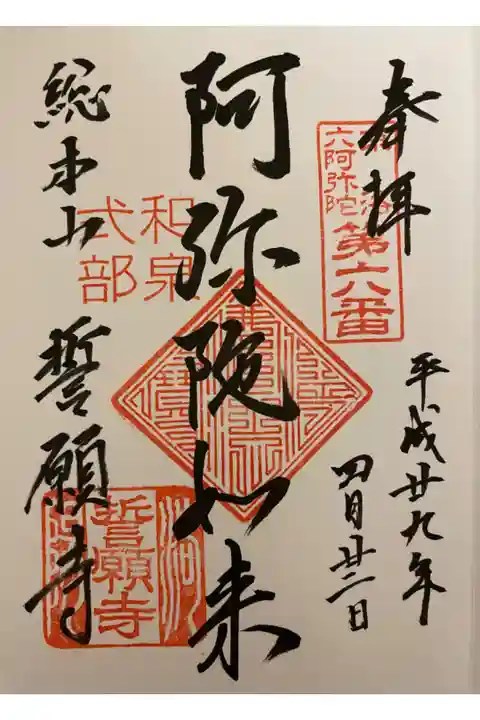 奉拝
六阿弥陀
第六番
平成廿九年
四月廿二日
阿弥陀如来
和泉
式部
総本山 誓願寺
誓願寺